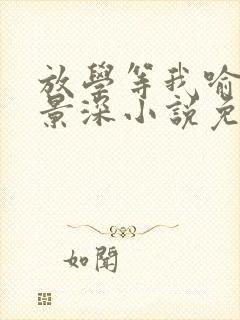 放學等我喻
景深小說免
如聞